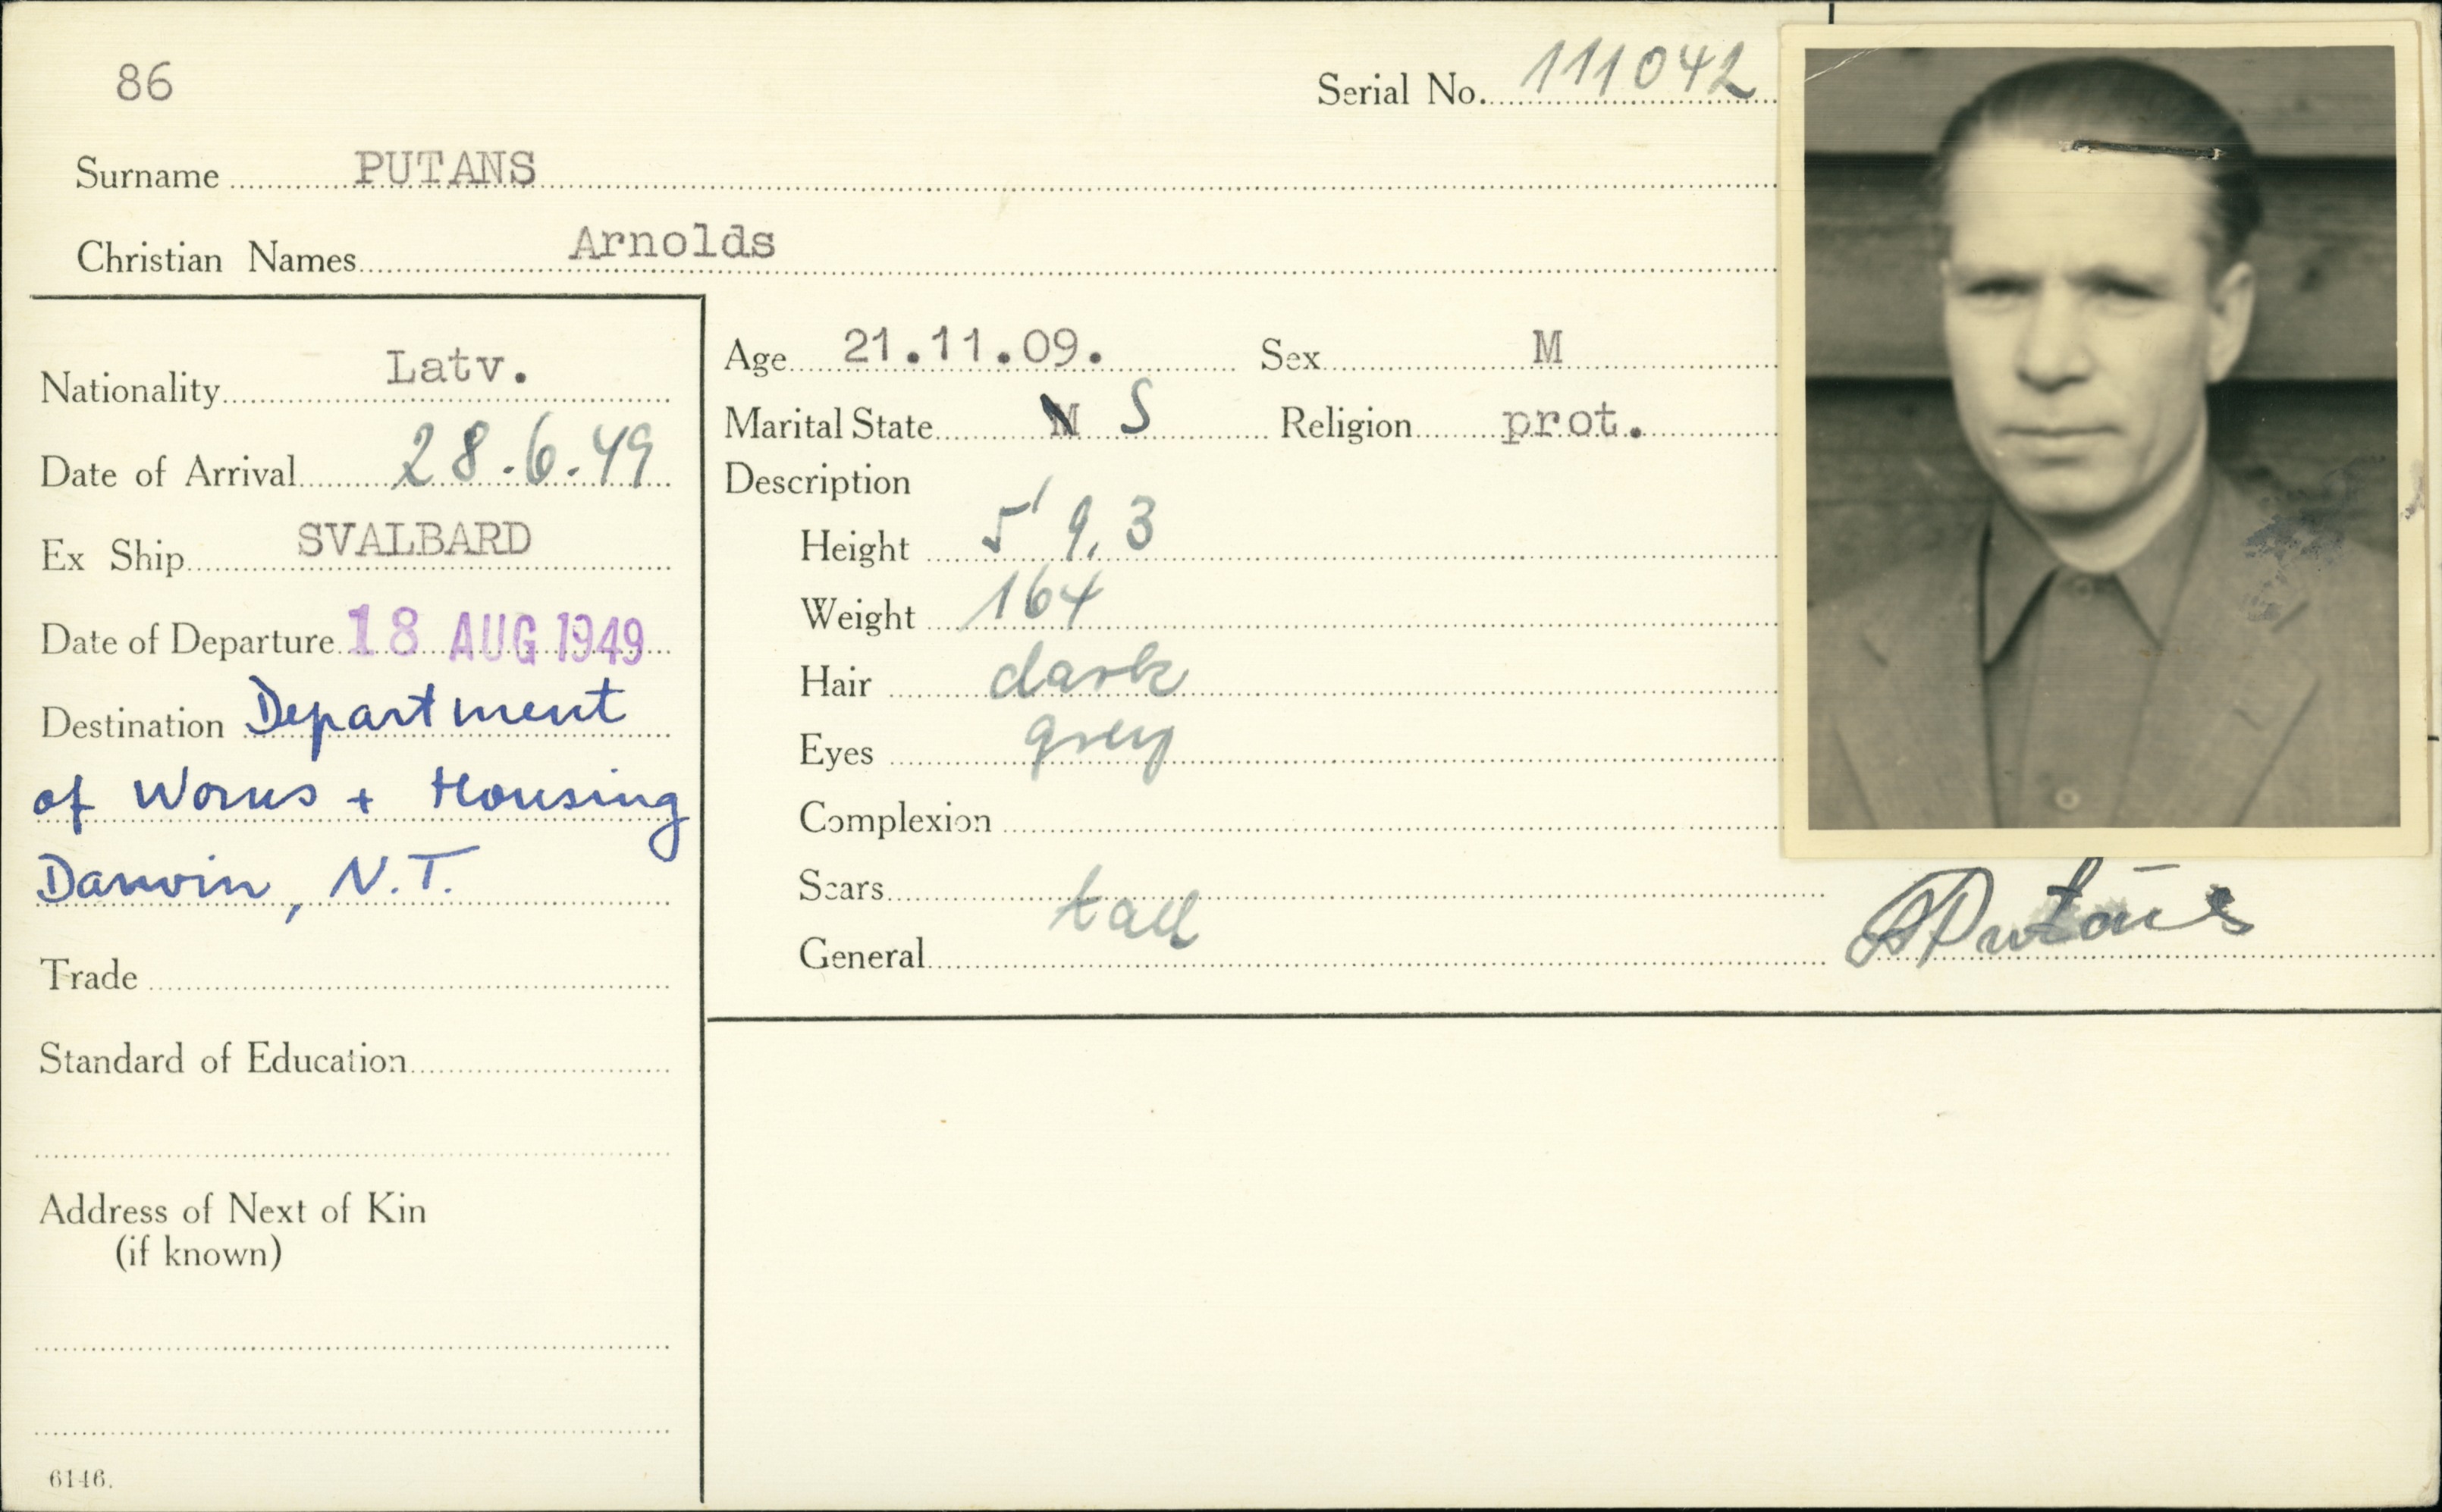 86
Serial No. 111042
Surname PUTANS
Christian Names Arnolds
Nationality Latv.
Date of Arrival 28.6.49
Ex Ship SVALBARD
Date of Departure 18 AUG 1949
Destination Department
of Works + Housing
Darwin, N.T.
Trade
Standard of Education
Address of Next of Kin
(if known)
6146.
Age 21.11.09. Sex M
Marital State M S Religion prot.
Description
Height 5' 9,3
Weight 164
Hair dark
Eyes grey
Complexion
Scars
General tall
APutāns